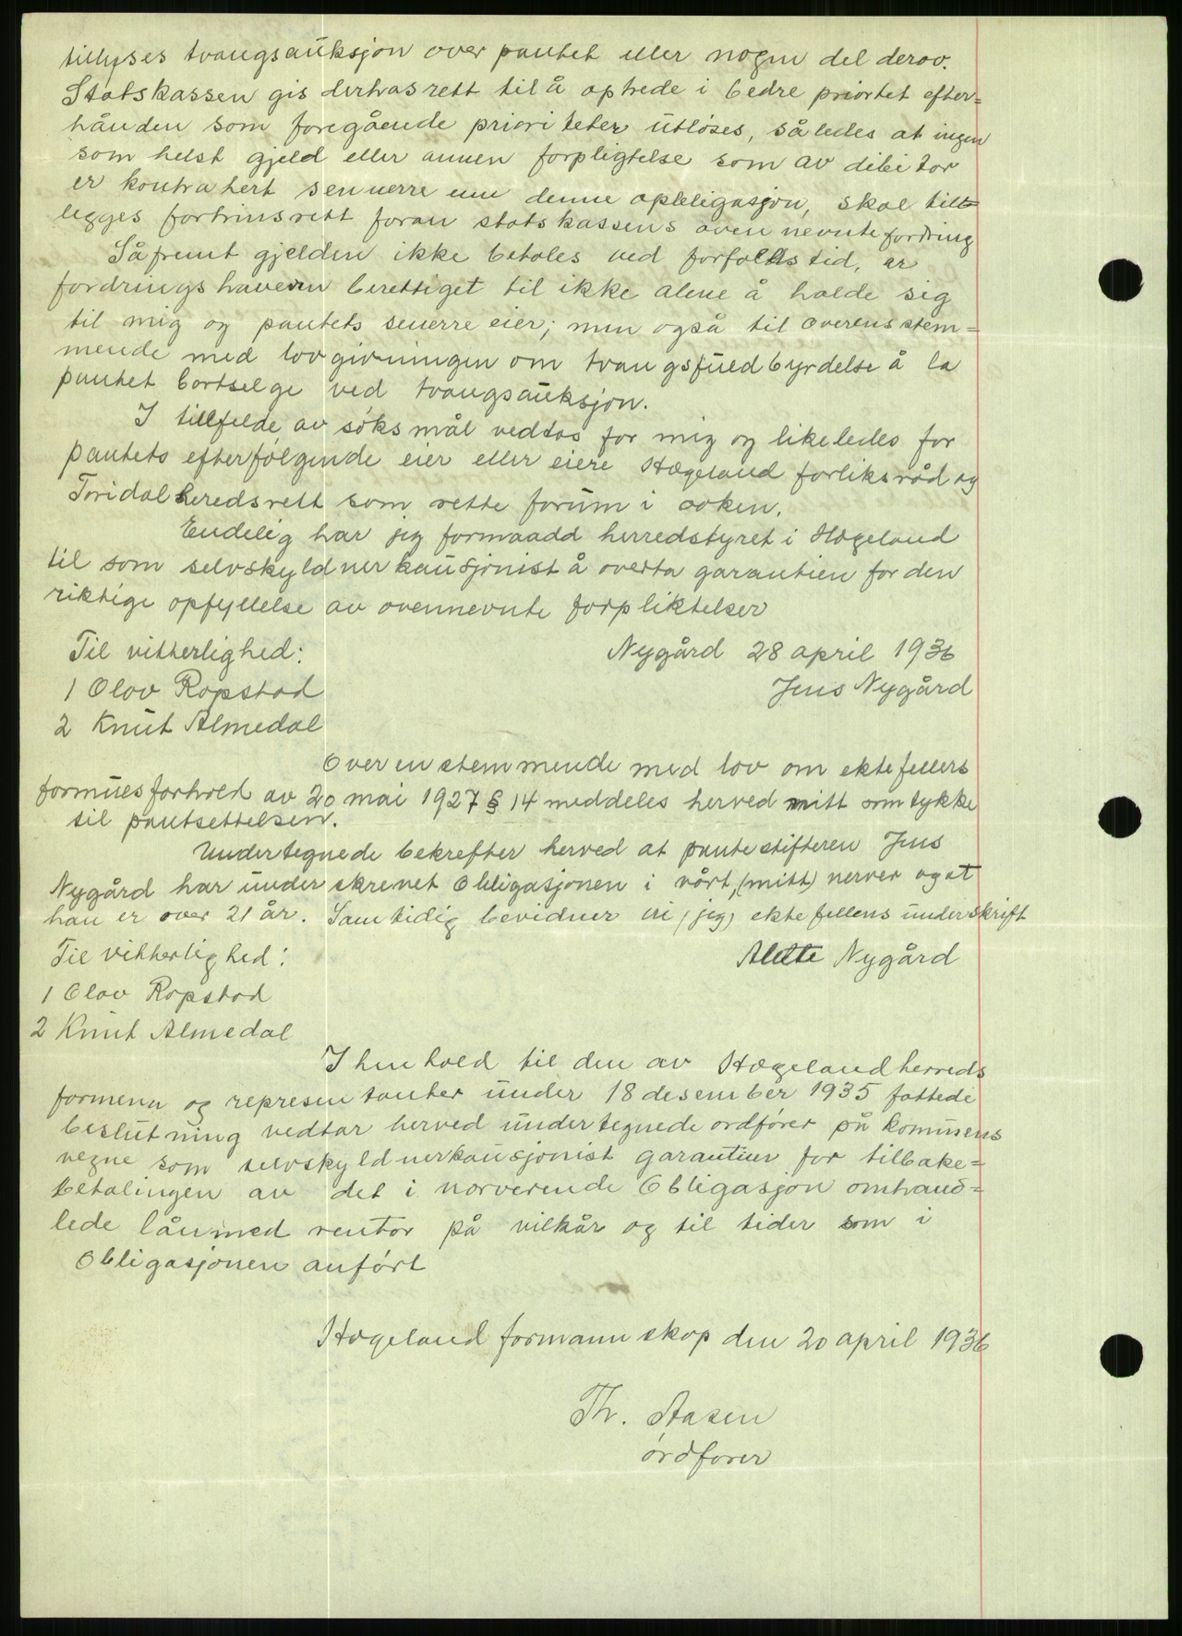 tillyses tvangsauksjon over pantet eller nogen del derav.
Statskassen gis derhos rett til å optrede i bedre priortet efter=
hånden som foregående prioriteter utløses, således at ingen
som helst gjeld eller annen forpligtelse som av debitor
er kontrahert sennerre enn denne obbligasjon, skal till=
legges fortrinsrett foran statskassens oven nevnte fordring
Såfremt gjelden ikke betales ved forfallstid, er
fordringshaveren berettiget til ikke alene å holde sig
til mig og pantets senerre eier; men også til overensstem=
mende med lovgivningen om tvangsfuldbyrdelse å la
pantet bortselge ved tvangsauksjon.
I tillfelde av søksmål vedtas for mig og likeledes for
pantets efterfølgende eier eller eiere Hægeland forliksråd og
Toridal heredsrett som rette forum i saken.
Endelig har jeg formaadd herredstyret i Hægeland
til som selvskyldnerkausjonist å overta garantien for den
riktige opfyllelse av ovennevnte forpliktelser
Nygård 28 april 1936
Jens Nygård
Til vitterlighed:
1 Olav Ropstad
2 Knut Almedal
Overenstemmende med lov om ektefellers
formuesforhold av 20 mai 1927 § 14 meddeles herved mitt samtykke
til pantsettelsen.
Undertegnede bekrefter herved at pantestifteren Jens
Nygård har underskrevet Obligasjonen i vårt, (mitt) nerver og at
han er over 21 år. Samtidig bevidner vi (jeg) ektefellens underskrift
Alette Nygård
Til vitterlighed:
1 Olav Ropstad
2 Knut Almedal
I henhold til den av Hægeland herreds
formenn og representanter under 18 desember 1935 fattede
beslutning vedtar herved undertegnede ordfører på kommuens
vegne som selvskyldnerkausjonist garantien for tilbake=
betalingen av det i nærverende Obligasjon omhand=
lede lån med rentor på vilkår og til tider som i
Obligasjonen anført
Hægeland formannskap den 20 april 1936
Th. Aasen
ordfører